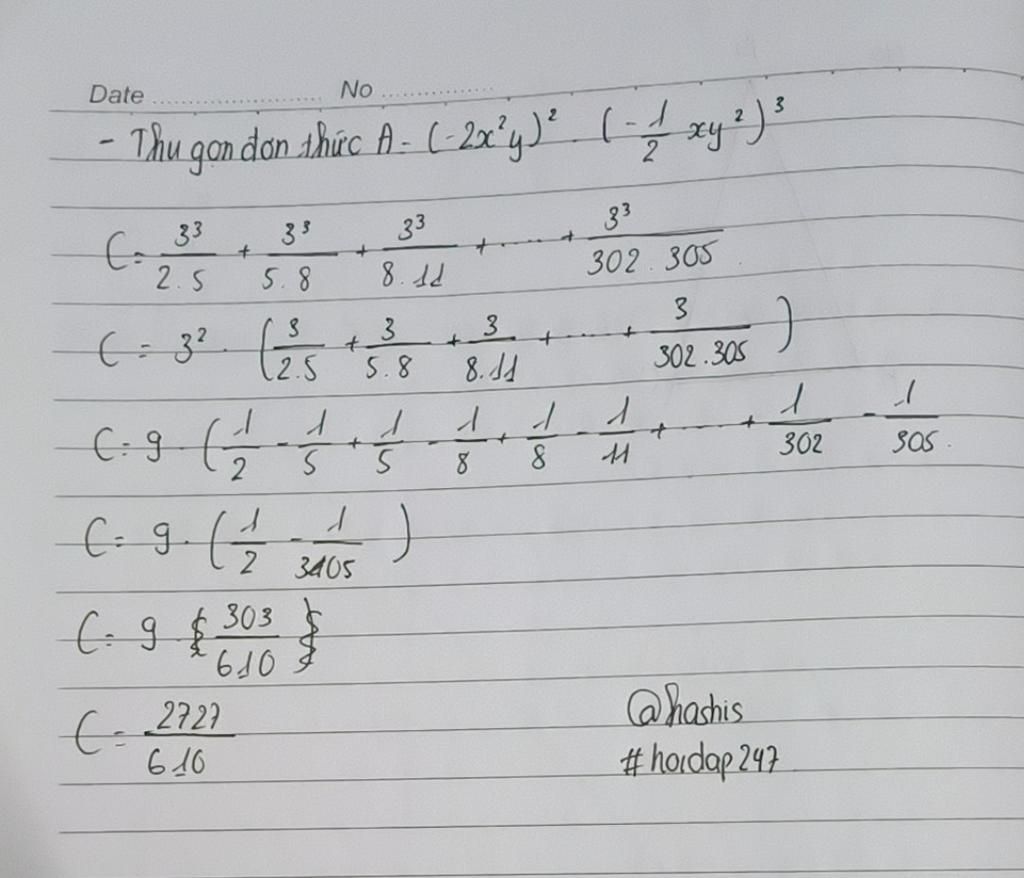 Date ........................ No .................
- Thu gọn đơn thức A = (-2x²y)² . (-1/2 xy²)³
C = 3³/2.5 + 3³/5.8 + 3³/8.11 + ..... + 3³/302.305
C = 3² . (3/2.5 + 3/5.8 + 3/8.11 + ..... + 3/302.305)
C = 9 . (1/2 - 1/5 + 1/5 - 1/8 + 1/8 - 1/11 + ..... + 1/302 - 1/305.
C = 9 . (1/2 - 1/305)
C = 9 . 303/610
C = 2727/610
@hashis
#hoidap247